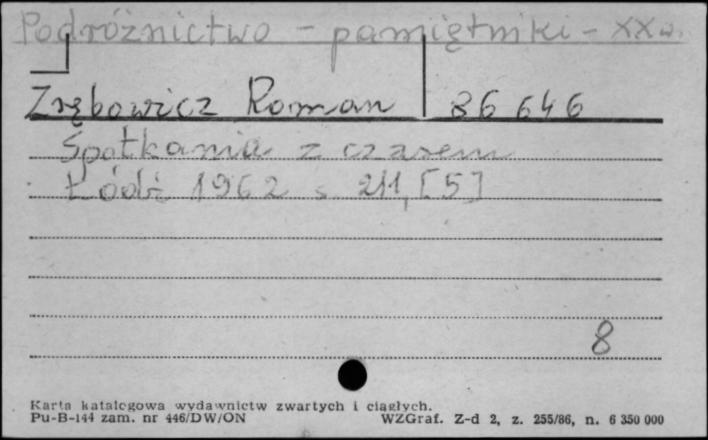 Podróżnictwo - pamiętniki - XX w.
Zrębowicz Roman 86 646
Spotkania z czasem
Łódź 1962 s. 211, [5]
8
Karta katalogowa wydawnictw zwartych i ciągłych.
Pu-B-144 zam. nr 446/DW/ON WZGraf. Z-d 2, z. 255/86, n. 6 350 000